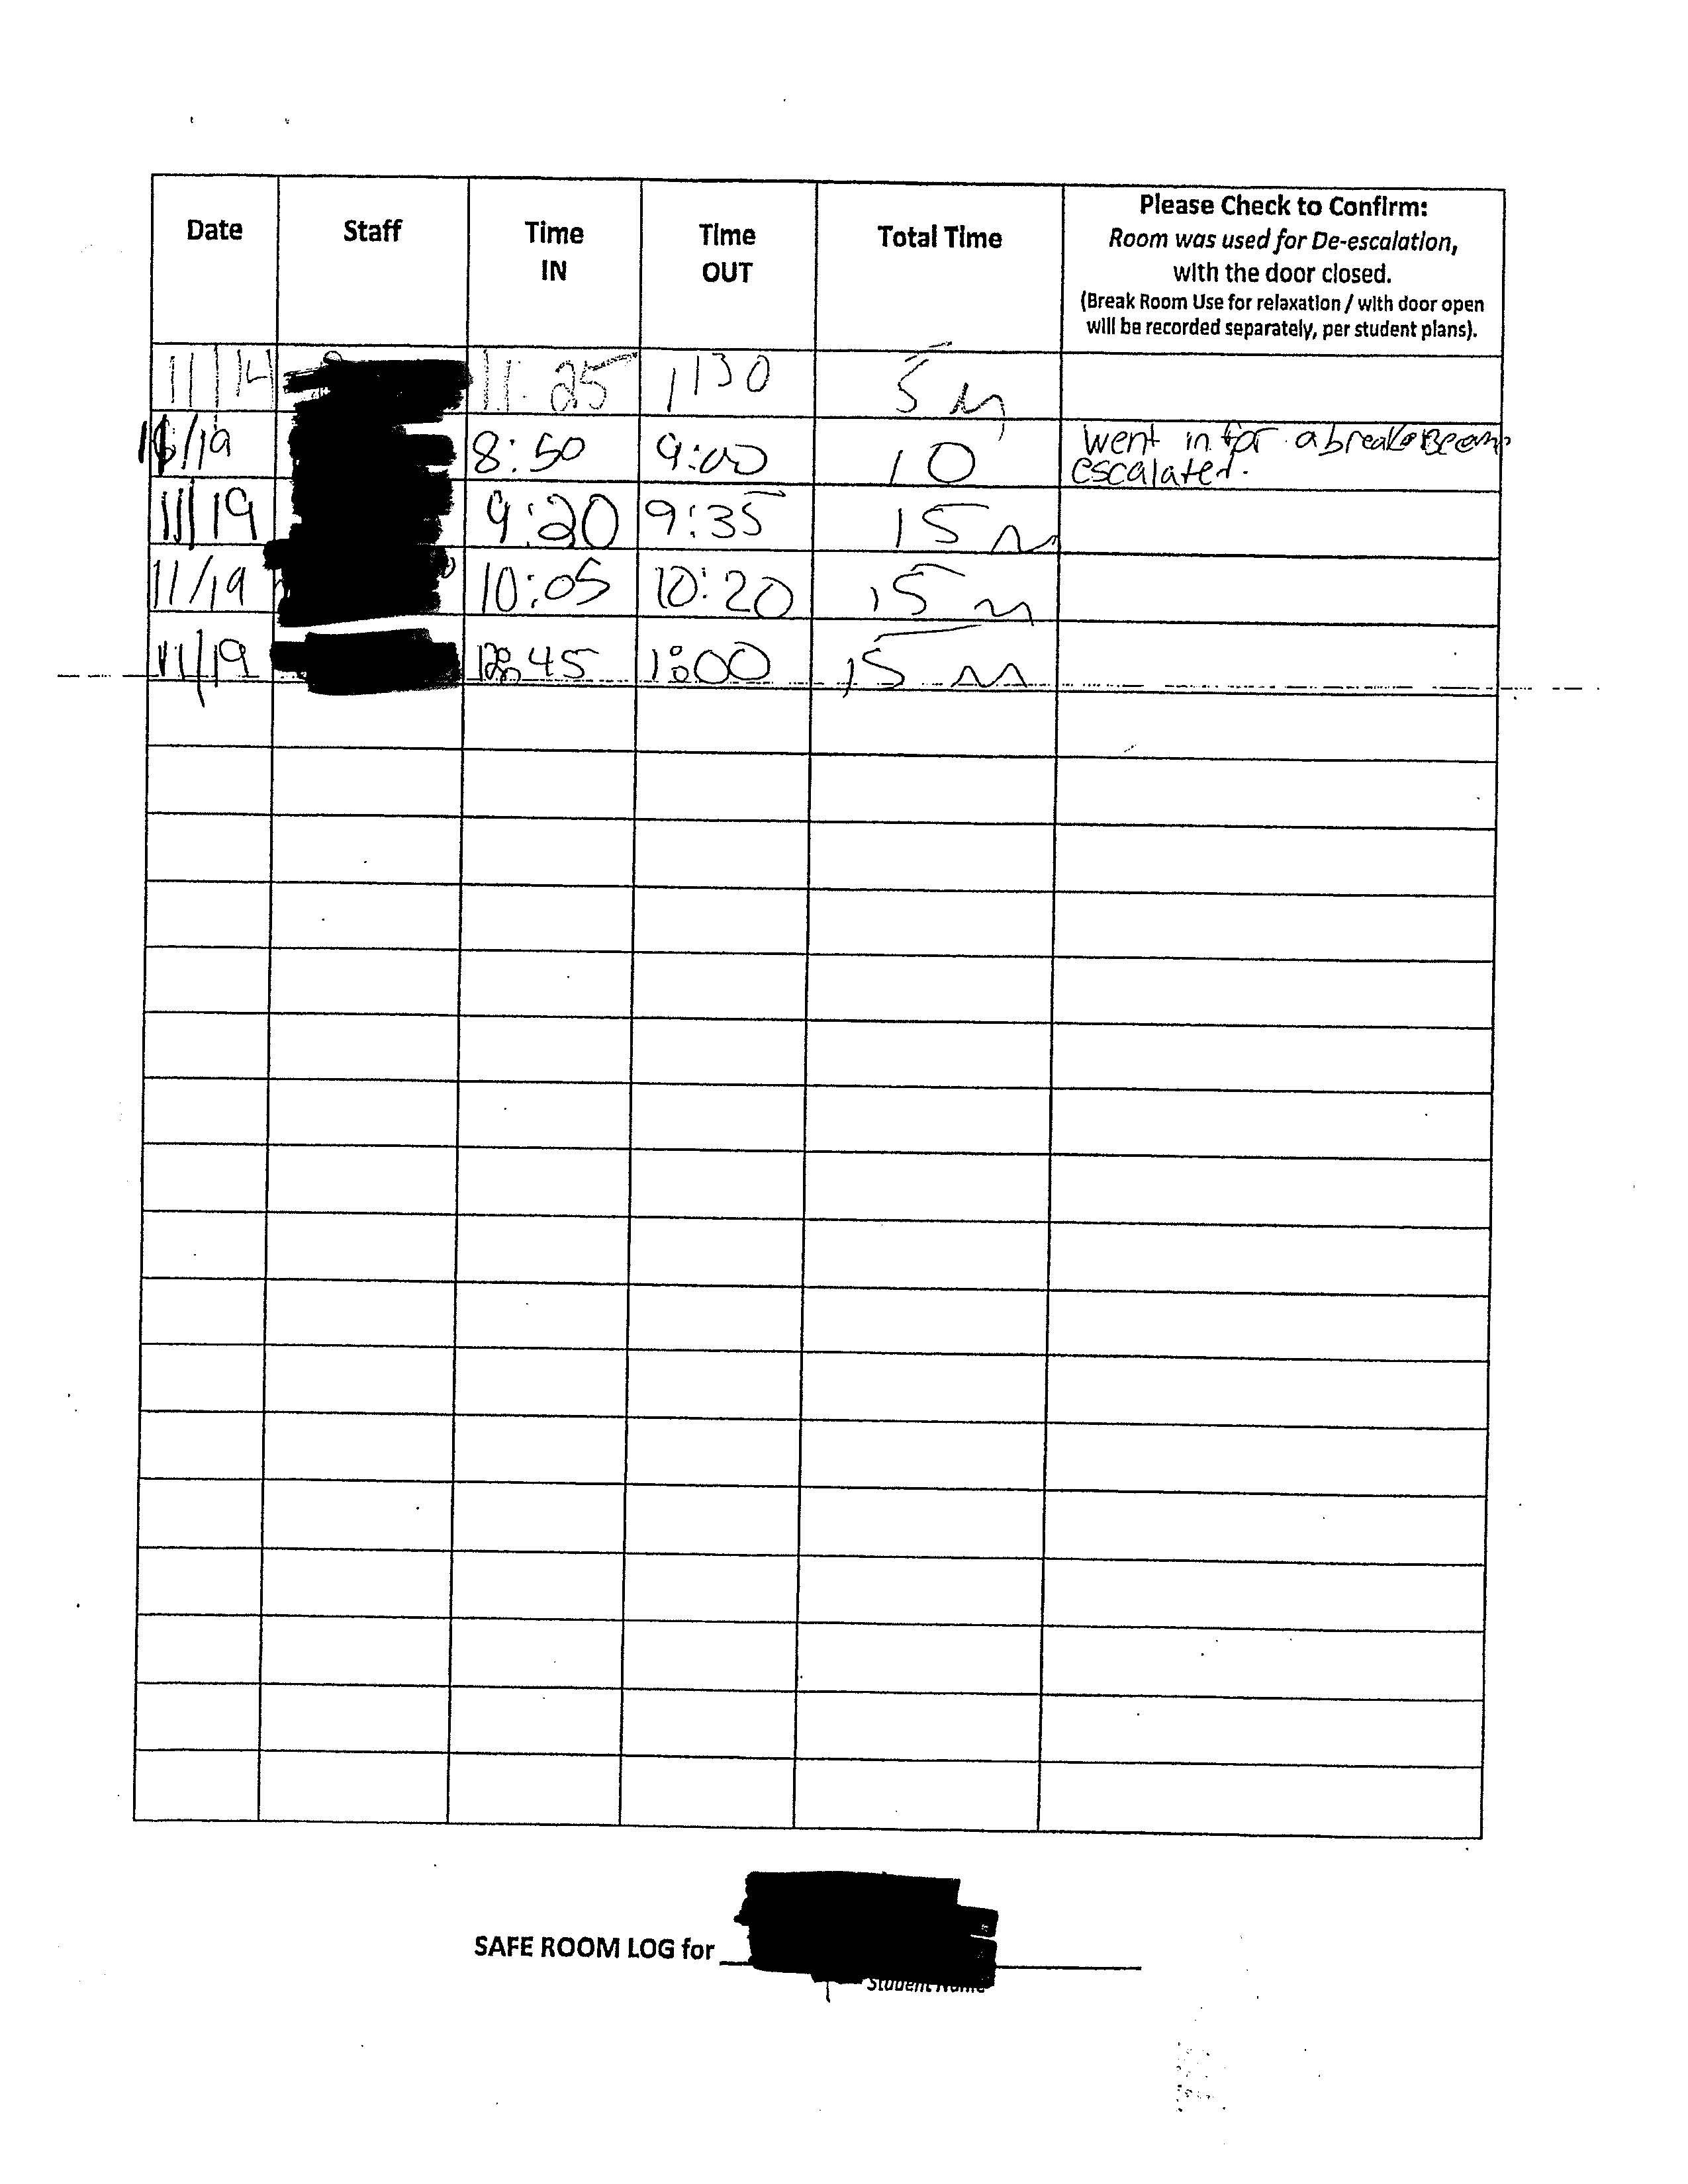 Date Staff Time IN Time OUT Total Time Please Check to Confirm:
Room was used for De-escalation,
with the door closed.
(Break Room Use for relaxation / with door open
will be recorded separately, per student plans).
11/14 11:25 1130 5 m
/19 8:50 9:00 10 went in for a break
escalated.
11/19 9:20 9:35 15 m
11/19 10:05 10:20 15 m
11/19 12:45 1:00 15 m
SAFE ROOM LOG for
Student Name